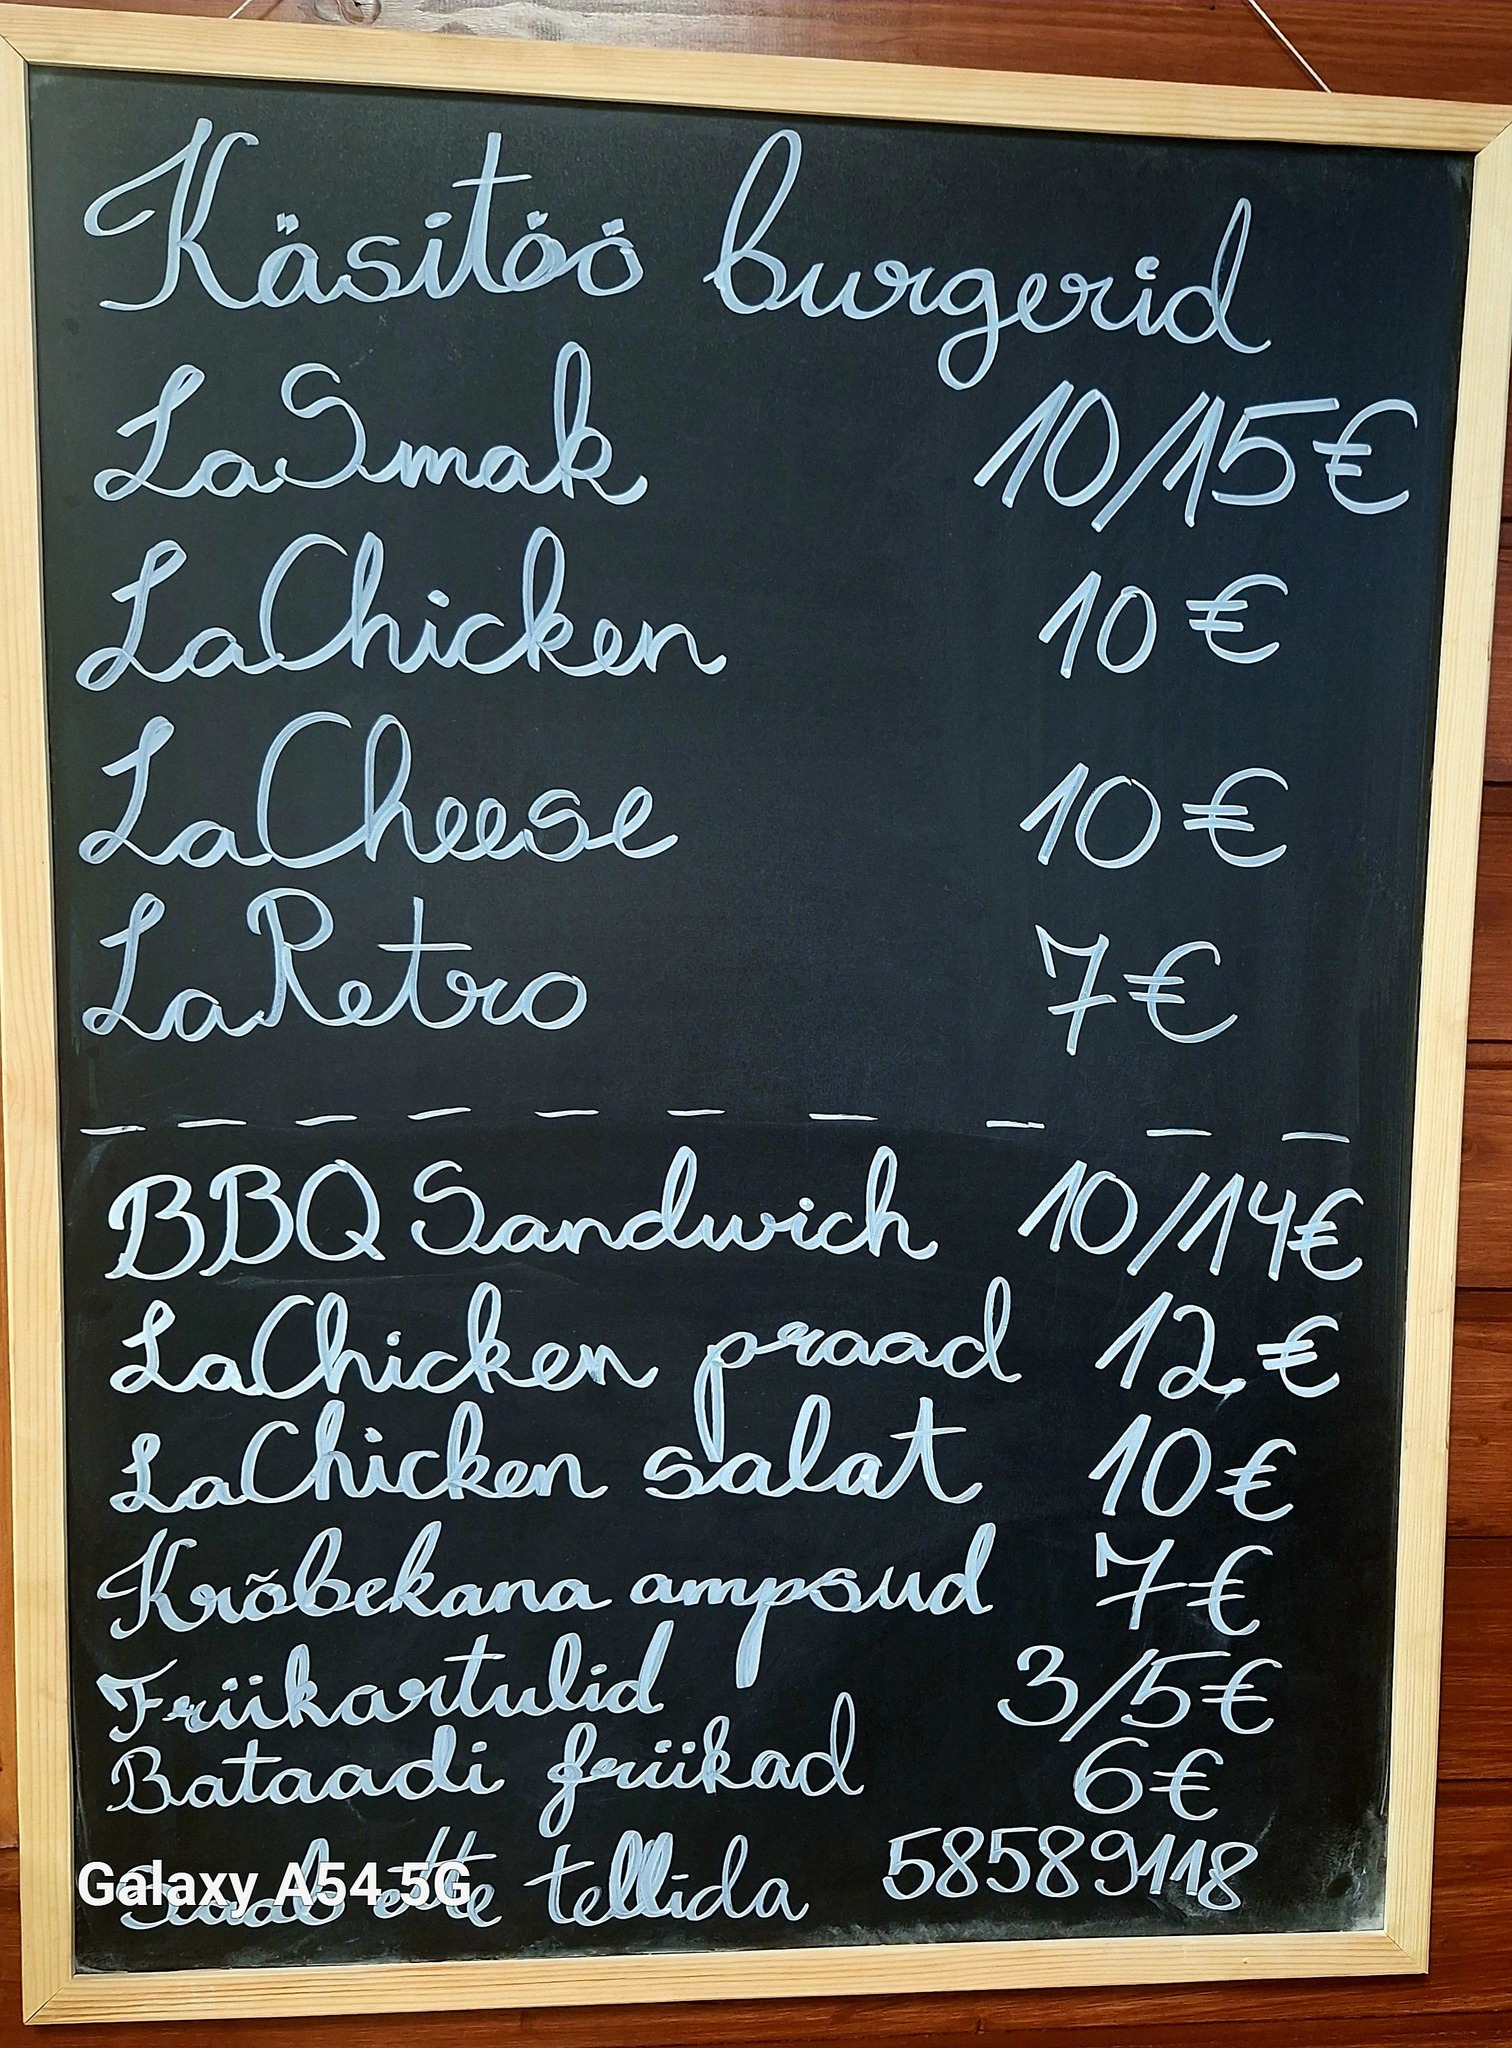 Käsitöö burgerid
LaSmak 10/15€
LaChicken 10€
LaCheese 10€
LaRetro 7€
BBQ Sandwich 10/14€
LaChicken praad 12€
LaChicken salat 10€
Krõbekana ampsud 7€
Friikartulid 3/5€
Bataadi friikad 6€
Saab ette tellida 58589118
Galaxy A54 5G